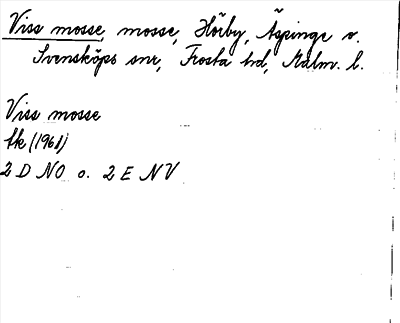 Viss mosse, mosse, Hörby, Äspinge o.
Svensköps snr, Frosta hd, Malm. l.
Viss mosse
tk (1961)
2 D NO o. 2 E NV